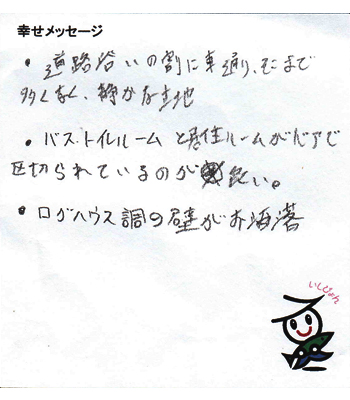 幸せメッセージ
・道路沿いの割に車通りそこまで
多くなく、静かな土地
・バス、トイレルームと居住ルームがドアで
区切られているのが良い。
・ログハウス調の壁がお洒落
いしじょん